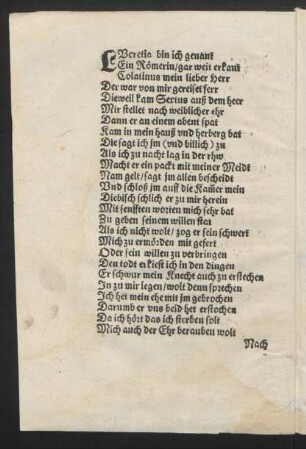 LVcretia bin ich genant
Ein Römerin/gar weit erkant
Colatinus mein lieber Herr
Der war von mir gereiset ferr
Dieweil kam Sextus auß dem heer
Mir stellet nach weiblicher ehr
Dann er an einem abent spat
Kam in mein hauß vnd herberg bat
Die sagt ich jm (vnd billich) zu
Als ich zu nacht lag in der rhw
Macht er ein packt mit meiner Meidt
Nam gelt/sagt jm allen bescheidt
Vnd schloß jm auff die Kam̃er mein
Diebisch schlich er zu mir herein
Mit senfften worten mich sehr bat
Zu geben seinem willen stat
Als ich nicht wolt/zog er sein schwert
Mich zu ermörden mit gefert
Oder sein willen zu verbringen
Den todt erkiest ich in den dingen
Er schwur mein Knecht auch zu erstechen
In zu mir legen/wolt denn sprechen
Ich het mein ehe mit jm gebrochen
Darumb er vns beid het erstochen
Da ich hört das ich sterben solt
Mich auch der Ehr berauben wolt
Nach